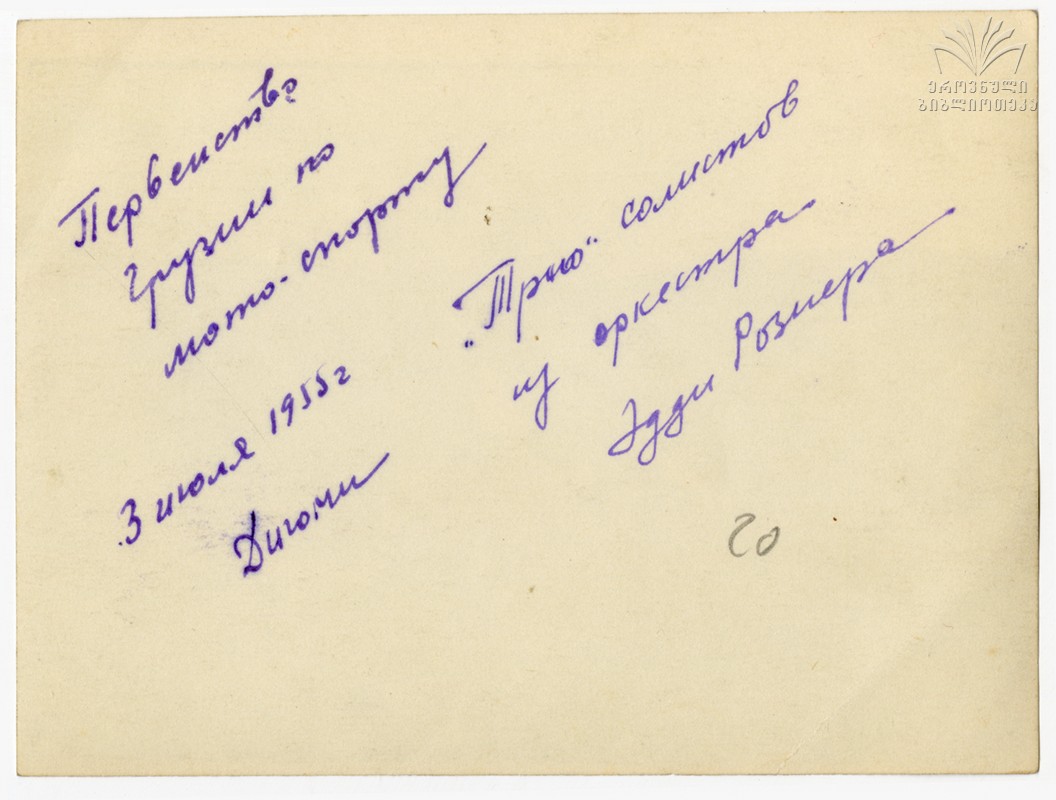 Первенство
Грузии по
мото-спорту
3 июля 1955 г
Дигоми
„Трио“ солистов
из оркестра
Эдди Рознера
20
ეროვნული
ბიბლიოთეკა